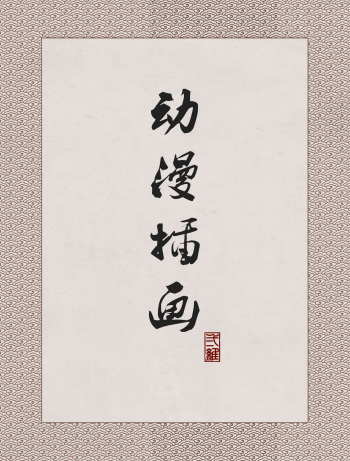 动漫插画